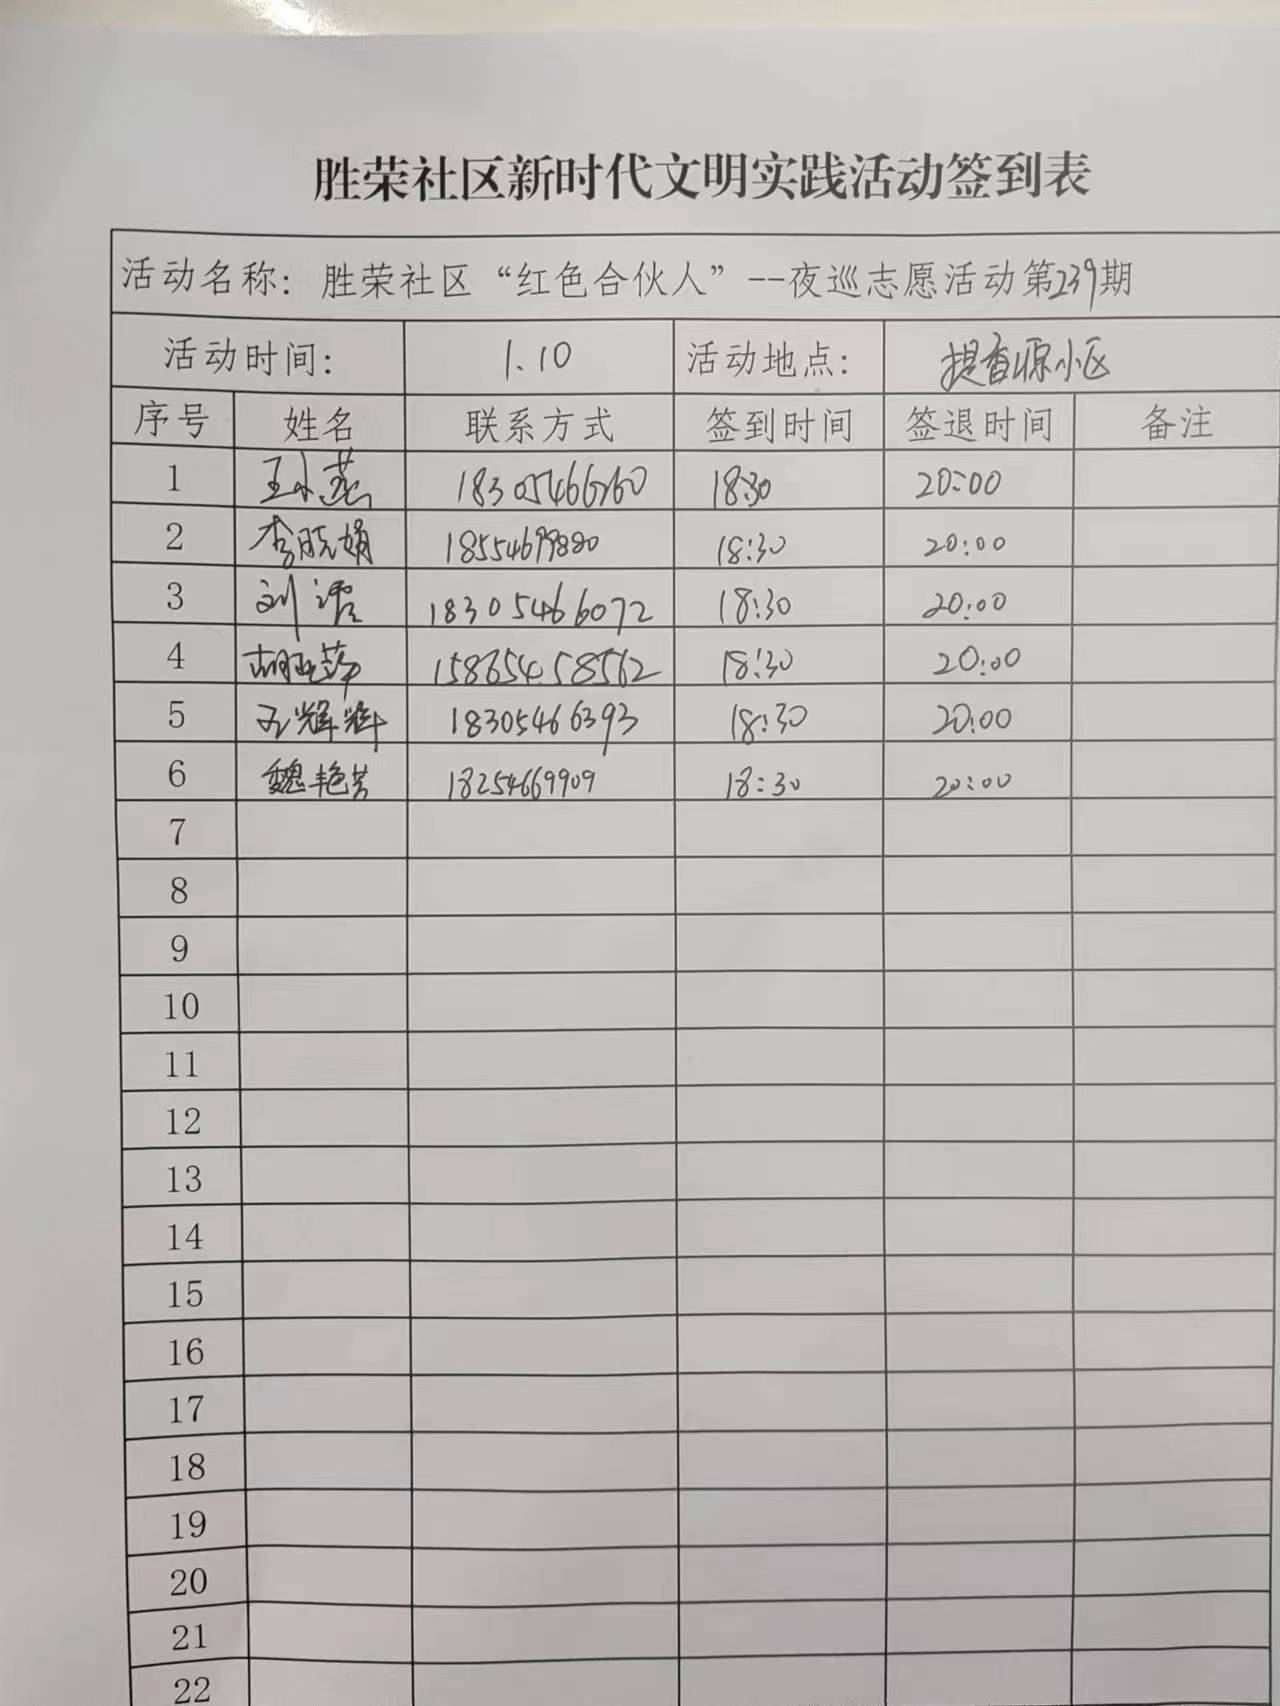 胜荣社区新时代文明实践活动签到表
活动名称：胜荣社区“红色合伙人”--夜巡志愿活动第239期
活动时间： 1.10 活动地点： 提香源小区
序号 姓名 联系方式 签到时间 签退时间 备注
1 王小燕 18:30 20:00
2 李晓娟 18554699880 18:30 20:00
3 刘洁 18305466072 18:30 20:00
4 胡亚萍 15865458562 18:30 20:00
5 王辉辉 18305466393 18:30 20:00
6 魏艳芳 18254669909 18:30 20:00
7
8
9
10
11
12
13
14
15
16
17
18
19
20
21
22